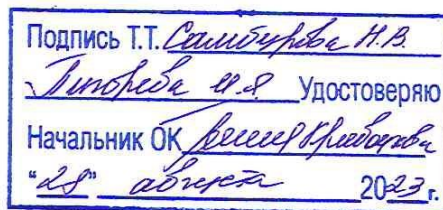 Подпись Т.Т. Самбурова Н.В.
И.Я. Удостоверяю
Начальник ОК
"28" августа 2023г.